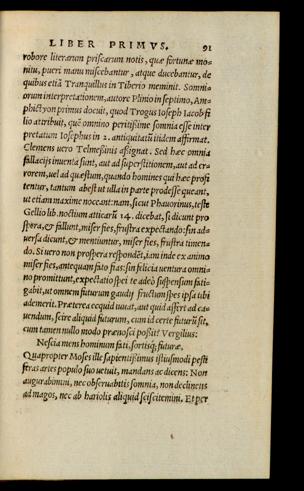 LIBER PRIMVS. 91
robore literarum priscarum notis, quæ fortunæ mo-
nitu, pueri manu miscebantur, atque ducebantur, de
quibus etiã Tranquillus in Tiberio meminit. Somni-
orum interpretationem, autore Plinio in septimo, Am-
phictyon primus docuit, quod Trogus Ioseph Iacob fi
lio attribuit, quẽ omnino peritißime somnia esse inter
pretatum Iosephus in 2. antiquitatũ itidem affirmat.
Clemens uero Telmesanis aßignat. Sed hæc omnia
fallacijs inuenta sunt, aut ad superstitionem, aut ad er-
rorem, uel ad quæstum, quando homines qui hæc profi
tentur, tantum abest ut ulla in parte prodesse queant,
ut etiam maxime noceant: nam, sicut Phauorinus, teste
Gellio lib. noctium atticarũ 14. dicebat, si dicunt pro
spera, & fallunt, miser fies, frustra expectando: sin ad-
uersa dicunt, & mentiuntur, miser fies, frustra timen-
do. Si uero non prospera respondẽt, iam inde ex animo
miser fies, antequam fato fias: sin felicia uentura omni
no promittunt, expectatio spei te adeò suspensum fati-
gabit, ut omnem futurum gaudij fructum spes ipsa tibi
ademerit. Præterea ecquid iuuat, aut quid affert ad ca-
uendum, scire aliquid futurum, cum id certe futurũ sit,
cum tamen nullo modo prænosci poßit? Vergilius:
Nescia mens hominum fati, sortisq; futuræ.
Quapropter Moses ille sapientißimus istiusmodi pesti
feras artes populo suo uetuit, mandans ac dicens: Non
augurabimini, nec obseruabitis somnia, non declinetis
ad magos, nec ab hariolis aliquid sciscitemini. Et per